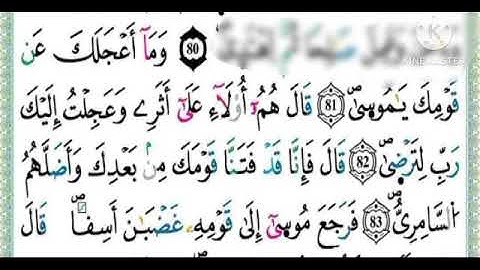 80 وَمَآ أَعْجَلَكَ عَن
KINEMASTER
قَوْمِكَ يَٰمُوسَىٰ 81 قَالَ هُمُۥٓ أُوْلَآءِ عَلَىٰٓ أَثَرِے وَعَجِلْتُ إِلَيْكَ
رَبِّ لِتَرْضَىٰ 82 قَالَ فَإِنَّا قَدْ فَتَنَّا قَوْمَكَ مِنۢ بَعْدِكَ وَأَضَلَّهُمُ
اُ۬لسَّامِرِيُّ 83 فَرَجَعَ مُوسَىٰٓ إِلَىٰ قَوْمِهِۦ غَضْبَٰنَ أَسِفاٗۖ قَالَ